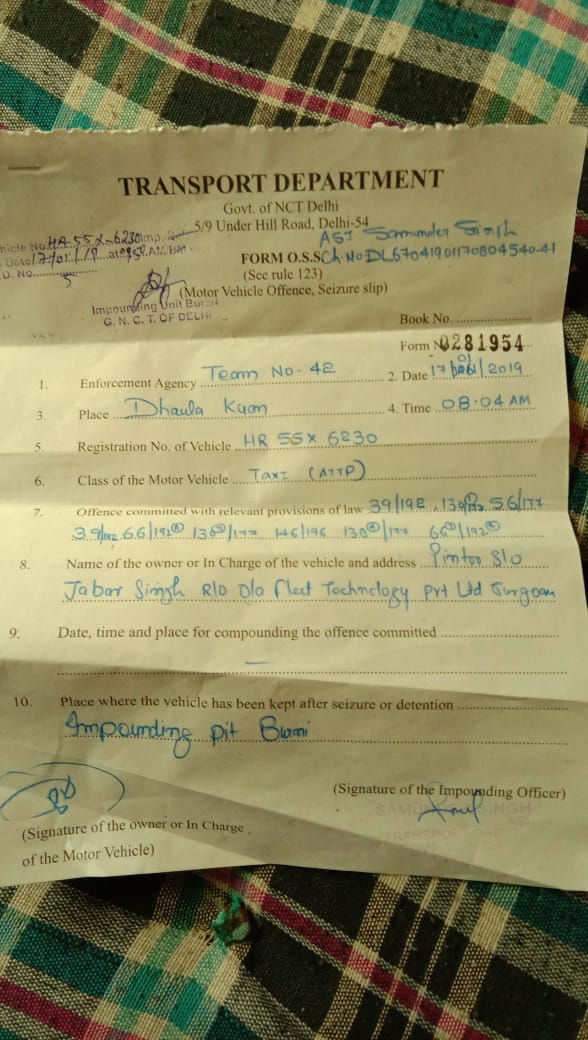 TRANSPORT DEPARTMENT
Govt. of NCT Delhi
5/9 Under Hill Road, Delhi-54
ASI Samunder Singh
hicle No. HR 55 X-6230 Imp.
FORM O.S.S Ch. No DL67041901170804540-41
Date 17/01/19 at 9:50 AM
D. No.
(See rule 123)
(Motor Vehicle Offence, Seizure slip)
Impounding Unit Burari
G. N. C. T. OF DELHI
Book No.
Form No 0281954
1. Enforcement Agency Team No. 42
2. Date 17/01/2019
3. Place Dhaula Kuan
4. Time 08:04 AM
5. Registration No. of Vehicle HR 55X 6230
6. Class of the Motor Vehicle Taxi (ATTP)
7. Offence committed with relevant provisions of law 39/192, 56/177
146/196
8. Name of the owner or In Charge of the vehicle and address Pintoo S/o
Jabar Singh R/o Ola Fleet Technology Pvt Ltd Gurgoan
9. Date, time and place for compounding the offence committed
10. Place where the vehicle has been kept after seizure or detention
Impounding pit Burari
(Signature of the Impounding Officer)
(Signature of the owner or In Charge
of the Motor Vehicle)